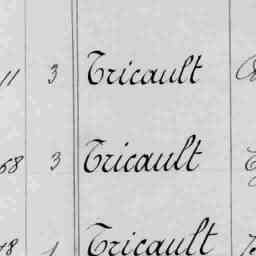 11 3 Tricault
58 3 Tricault
Tricault